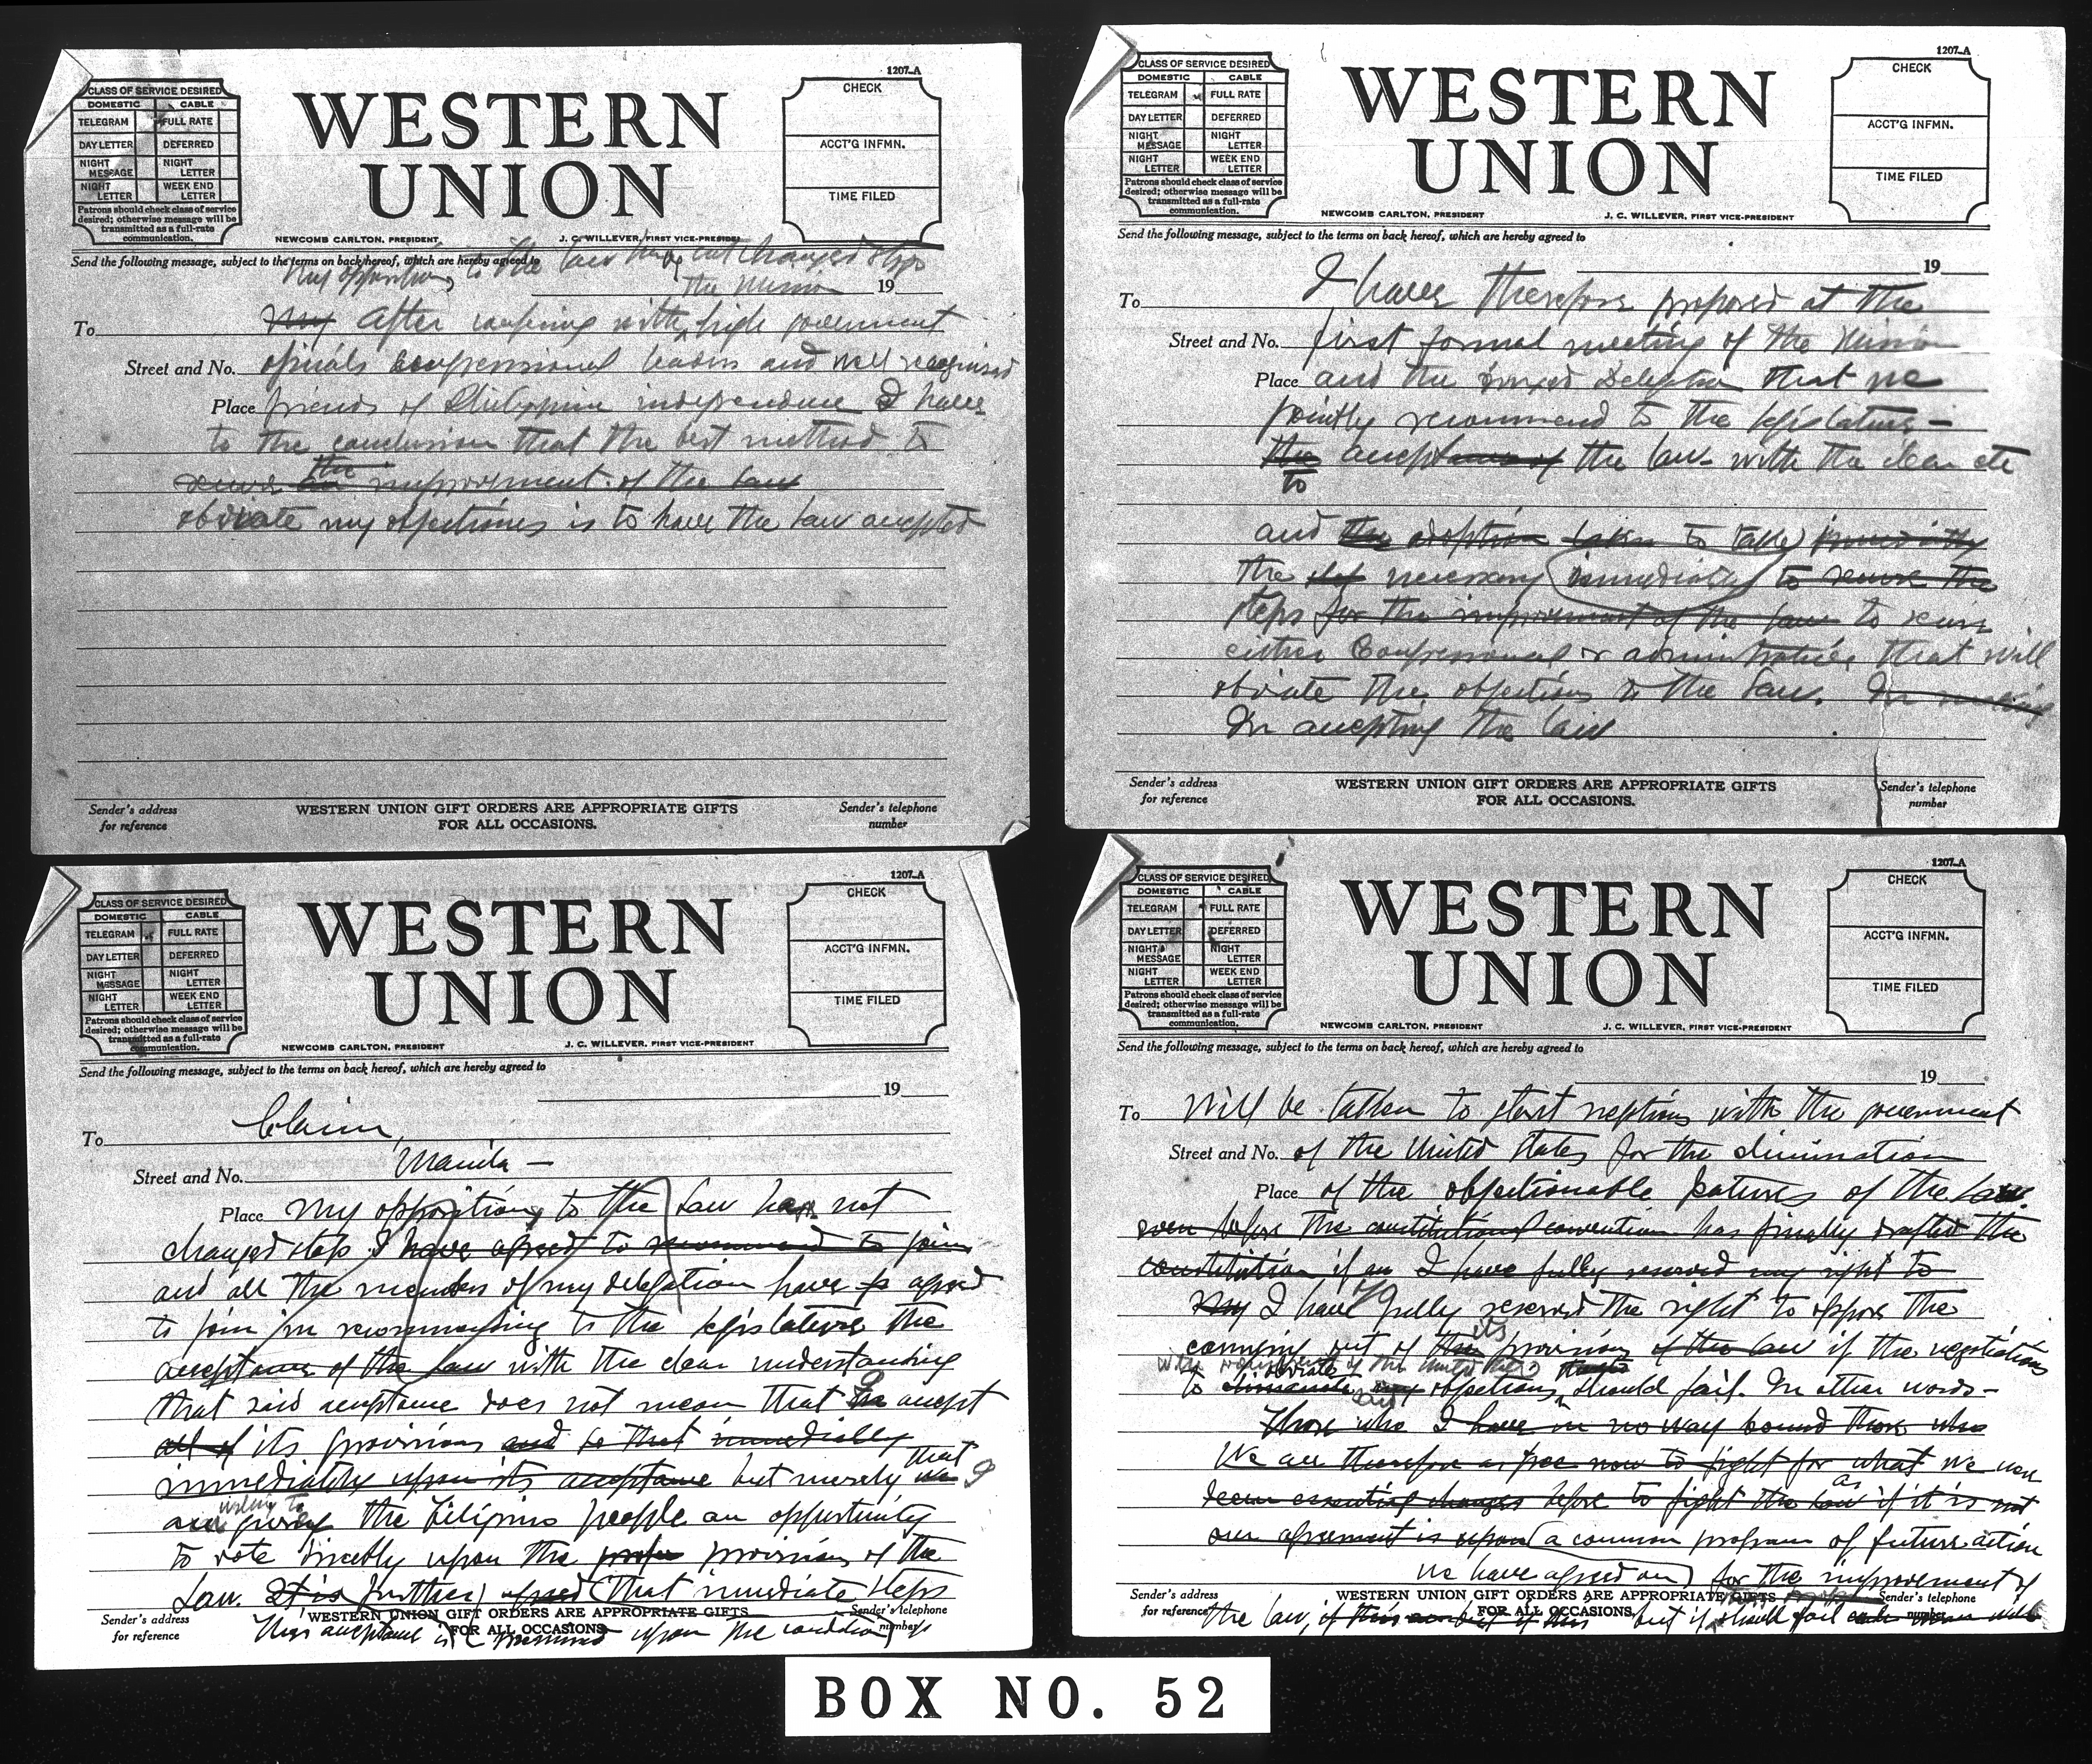 1207-A
CLASS OF SERVICE DESIRED
DOMESTIC CABLE
TELEGRAM FULL RATE
DAY LETTER DEFERRED
NIGHT MESSAGE NIGHT LETTER
NIGHT LETTER WEEK END LETTER
Patrons should check class of service
desired; otherwise message will be
transmitted as a full-rate
communication.
WESTERN
UNION
CHECK
ACCT'G INFMN.
TIME FILED
NEWCOMB CARLTON, PRESIDENT J. C. WILLEVER, FIRST VICE-PRESIDENT
Send the following message, subject to the terms on back hereof, which are hereby agreed to
My opposition to the law has not changed stop
the mission 19
To My After confering with high government
Street and No. oficials congressional leaders and well recognized
Place friends of Philippine independence I have
to the conclusion that the best method to
the
secure an improvement of the law
obviate my objections is to have the law accepted
Sender's address
for reference
WESTERN UNION GIFT ORDERS ARE APPROPRIATE GIFTS
FOR ALL OCCASIONS.
Sender's telephone
number
1207-A
CLASS OF SERVICE DESIRED
DOMESTIC CABLE
TELEGRAM FULL RATE
DAY LETTER DEFERRED
NIGHT MESSAGE NIGHT LETTER
NIGHT LETTER WEEK END LETTER
Patrons should check class of service
desired; otherwise message will be
transmitted as a full-rate
communication.
WESTERN
UNION
CHECK
ACCT'G INFMN.
TIME FILED
NEWCOMB CARLTON, PRESIDENT J. C. WILLEVER, FIRST VICE-PRESIDENT
Send the following message, subject to the terms on back hereof, which are hereby agreed to
19
To I have therefore proposed at the
Street and No. first formal meeting of the Mission
Place and the Delegation that we
jointly recommend to the legislature -
the acceptance of the law with the clear etc
to
and the adoption to take immediately
the step necessary immediately to secure the
steps for the improvement of the law to secure
either Congressional or administrative that will
obviate the objections to the law. In
In accepting the law
Sender's address
for reference
WESTERN UNION GIFT ORDERS ARE APPROPRIATE GIFTS
FOR ALL OCCASIONS.
Sender's telephone
number
1207-A
CLASS OF SERVICE DESIRED
DOMESTIC CABLE
TELEGRAM FULL RATE
DAY LETTER DEFERRED
NIGHT MESSAGE NIGHT LETTER
NIGHT LETTER WEEK END LETTER
Patrons should check class of service
desired; otherwise message will be
transmitted as a full-rate
communication.
WESTERN
UNION
CHECK
ACCT'G INFMN.
TIME FILED
NEWCOMB CARLTON, PRESIDENT J. C. WILLEVER, FIRST VICE-PRESIDENT
Send the following message, subject to the terms on back hereof, which are hereby agreed to
19
To Clarin,
Street and No. Manila -
Place My opposition to the law has not
changed stop I have agreed to recommend to join
and all the members of my delegation have agreed
to join in recommending to the legislature the
acceptance of the law with the clear understanding
that said acceptance does not mean that I accept
all of its provisions and so that immediately
that
immediately upon its acceptance but merely we I
willing to
are giving the Filipino people an opportunity
to vote directly upon the provisions of the
Law. It is further agreed that immediate steps
This acceptance is upon the condition
Sender's address
for reference
WESTERN UNION GIFT ORDERS ARE APPROPRIATE GIFTS
FOR ALL OCCASIONS
Sender's telephone
number
1207-A
CLASS OF SERVICE DESIRED
DOMESTIC CABLE
TELEGRAM FULL RATE
DAY LETTER DEFERRED
NIGHT MESSAGE NIGHT LETTER
NIGHT LETTER WEEK END LETTER
Patrons should check class of service
desired; otherwise message will be
transmitted as a full-rate
communication.
WESTERN
UNION
CHECK
ACCT'G INFMN.
TIME FILED
NEWCOMB CARLTON, PRESIDENT J. C. WILLEVER, FIRST VICE-PRESIDENT
Send the following message, subject to the terms on back hereof, which are hereby agreed to
19
To will be taken to start neptions with the government
Street and No. of the United States for the elimination
Place of the objectionable features of the law
even before the constitutional convention has finally drafted the
constitution if an I have fully reserved my right to
My I have fully reserved the right to oppose the
its
carrying out of the provisions of the law if the negotiations
with of the United States
obviate
to eliminate my objections should fail. In other words -
Those who I have in no way bound those who
We are therefore as free now to fight for what we now
as
deem essential changes before to fight the law if it is not
our agreement is upon a common program of future action
we have agreed on for the improvement of
the law, if this but if should fail
Sender's address
for reference
WESTERN UNION GIFT ORDERS ARE APPROPRIATE GIFTS
FOR ALL OCCASIONS
Sender's telephone
number
BOX NO. 52